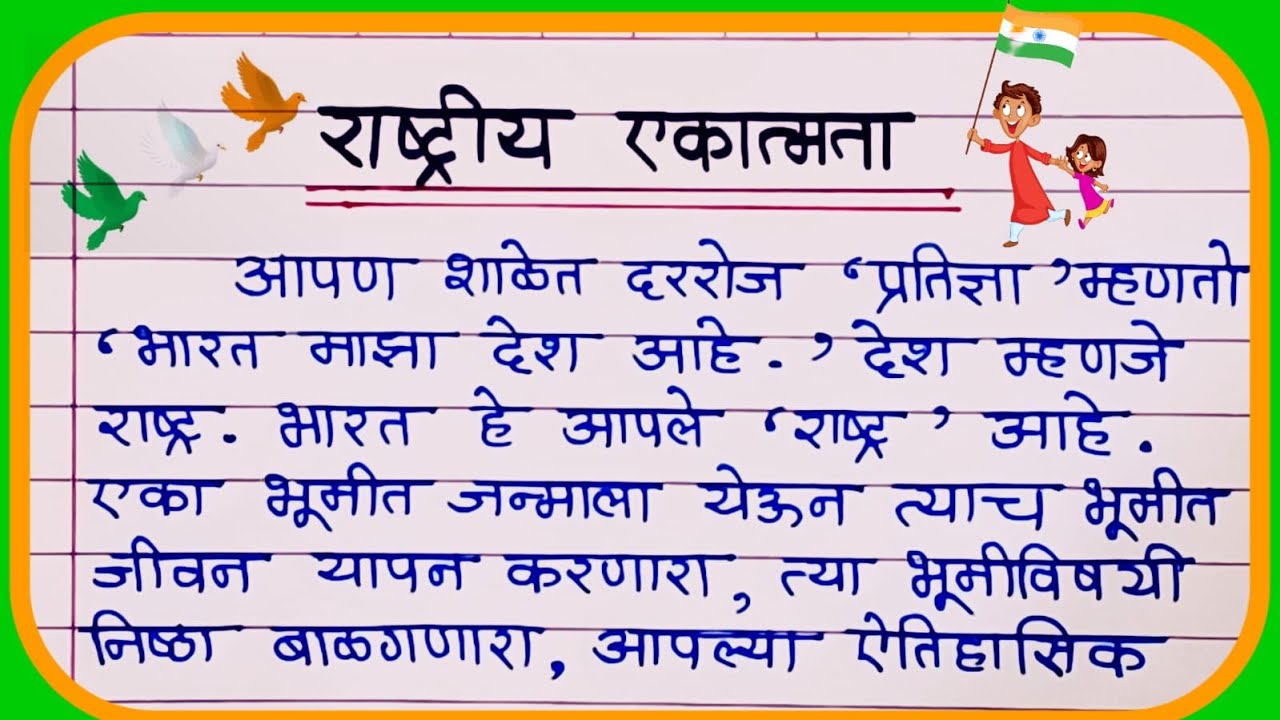 राष्ट्रीय एकात्मता
आपण शाळेत दररोज ‘प्रतिज्ञा’ म्हणतो
‘भारत माझा देश आहे.’ देश म्हणजे
राष्ट्र. भारत हे आपले ‘राष्ट्र’ आहे.
एका भूमीत जन्माला येऊन त्याच भूमीत
जीवन यापन करणारा, त्या भूमीविषयी
निष्ठा बाळगणारा, आपल्या ऐतिहासिक